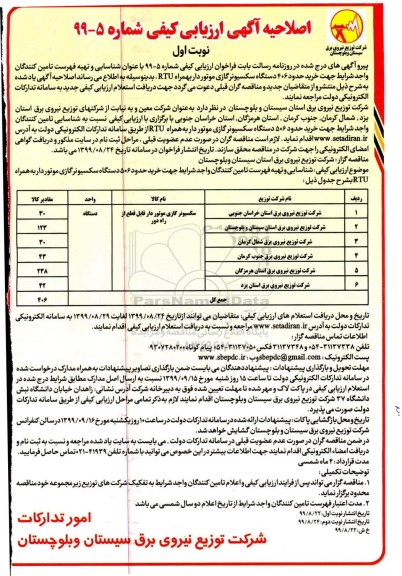 اصلاحیه آگهی ارزیابی کیفی شماره ۵-۹۹
نوبت اول
شرکت توزیع نیروی برق
سیستان وبلوچستان
پیرو آگهی های درج شده در روزنامه رسالت بابت فراخوان ارزیابی کیفی شماره ۵-۹۹ با عنوان شناسایی و تهیه فهرست تامین کنندگان
واجد شرایط جهت خرید حدود ۴۰۶ دستگاه سکسیونر گازی موتور دار بهمراه RTU، بدینوسیله به اطلاع می رساند اصلاحیه آگهی یاد شده
به شرح ذیل منتشر و از متقاضیان جدید و مناقصه گران قبلی دعوت می گردد جهت دریافت استعلام ارزیابی کیفی جدید به سامانه تدارکات
الکترونیکی دولت مراجعه نمایند.
شرکت توزیع نیروی برق استان سیستان و بلوچستان در نظر دارد به عنوان شرکت معین و به نیابت از شرکتهای توزیع نیروی برق استان
یزد، شمال کرمان، جنوب کرمان، استان هرمزگان، استان خراسان جنوبی با برگزاری یا ارزیابی کیفی نسبت به شناسایی تامین کنندگان
واجد شرایط جهت خرید حدود ۵۰۶ دستگاه سکسیونر گازی موتور دار به همراه RTU از طریق سامانه تدارکات الکترونیکی دولت به آدرس
www.setadiran.ir اقدام نماید. لازم است مناقصه گران در صورت عدم عضویت قبلی، مراحل ثبت نام در سایت مذکور و دریافت گواهی
امضای الکترونیکی را جهت شرکت در مناقصه محقق سازند. تاریخ انتشار فراخوان در سامانه تاریخ ۱۳۹۹/۰۸/۲۴ می باشد.
مناقصه گزار: شرکت توزیع نیروی برق استان سیستان وبلوچستان
موضوع ارزیابی کیفی: شناسایی و تهیه فهرست تامین کنندگان واجد شرایط جهت خرید حدود ۵۰۶ دستگاه سکسیونر گازی موتور دار به همراه
RTU بشرح جدول ذیل:
ردیف نام شرکت توزیع نام کالا واحد مقادیر
۱ شرکت توزیع نیروی برق استان خراسان جنوبی سکسیونر گازی موتور دار قابل قطع از راه دور دستگاه ۳۰
۲ شرکت توزیع نیروی برق استان سیستان و بلوچستان ۱۲۳
۳ شرکت توزیع نیروی برق شمال کرمان ۳۰
۴ شرکت توزیع نیروی برق جنوب کرمان ۴۳
۵ شرکت توزیع نیروی برق استان هرمزگان ۲۳۸
۶ شرکت توزیع نیروی برق استان یزد ۴۲
جمع کل ۴۰۶
تاریخ و محل دریافت استعلام های ارزیابی کیفی: متقاضیان می توانند از تاریخ ۱۳۹۹/۰۸/۲۴ لغایت ۱۳۹۹/۰۸/۲۹ به سامانه الکترونیکی
تدارکات دولت به آدرس www.setadiran.ir مراجعه و نسبت به دریافت استعلام ارزیابی کیفی اقدام نمایند.
اطلاعات تماس مناقصه گزار:
پست الکترونیک: sbepdc@gmail.com وب: www.sbepdc.ir
مهلت تحویل و بارگذاری پیشنهادات: پیشنهاد دهندگان می بایست ضمن بارگذاری تصاویر پیشنهادات به همراه مدارک درخواست شده
در سامانه تدارکات الکترونیکی دولت تا ساعت ۱۵ روز شنبه مورخ ۱۳۹۹/۰۹/۱۵ نسبت به ارسال اصل مدارک مطابق شرایط درج شده در
استعلام ارزیابی کیفی در پاکت لاک و مهر شده تا مهلت تعیین شده فوق به دبیرخانه شرکت به آدرس نشانی: زاهدان خیابان دانشگاه نبش
دانشگاه ۳۷ شرکت توزیع نیروی برق سیستان وبلوچستان اقدام نمایند. لازم به ذکر تمامی مراحل ارزیابی کیفی از طریق سامانه تدارکات
دولت صورت می پذیرد.
تاریخ و محل بازگشایی پاکات: پیشنهادات ارائه شده در سامانه تدارکات دولت در ساعت ۱۰ روز یکشنبه مورخ ۱۳۹۹/۰۹/۱۶ در سالن کنفرانس
شرکت توزیع نیروی برق سیستان و بلوچستان گشایش خواهد شد.
در ضمن مناقصه گران در صورت عدم عضویت قبلی در سامانه تدارکات دولت، می بایست به سایت یاد شده مراجعه و نسبت به ثبت نام و
دریافت امضاء الکترونیکی اقدام نمایند جهت اطلاعات بیشتر در این خصوص می توانید با شماره تلفن ۴۱۹۳۴-۰۲۱ تماس حاصل فرمایید.
مدت قرارداد: ۴ ماه شمسی
توضیحات تکمیلی:
۱. مناقصه گزار می تواند پس از فرایند ارزیابی کیفی و اعلام تامین کنندگان واجد شرایط به تفکیک شرکت های توزیع زیر مجموعه خود مناقصه
محدود برگزار نماید.
۲. مدت اعتبار فهرست تامین کنندگان واجد شرایط از تاریخ اعلام دو سال شمسی می باشد
تاریخ انتشار نوبت اول: ۹۹/۸/۲۲
تاریخ انتشار نوبت دوم: ۹۹/۸/۲۴
خ ش: ۹۹/۸/۲۲
امور تدارکات
شرکت توزیع نیروی برق سیستان وبلوچستان